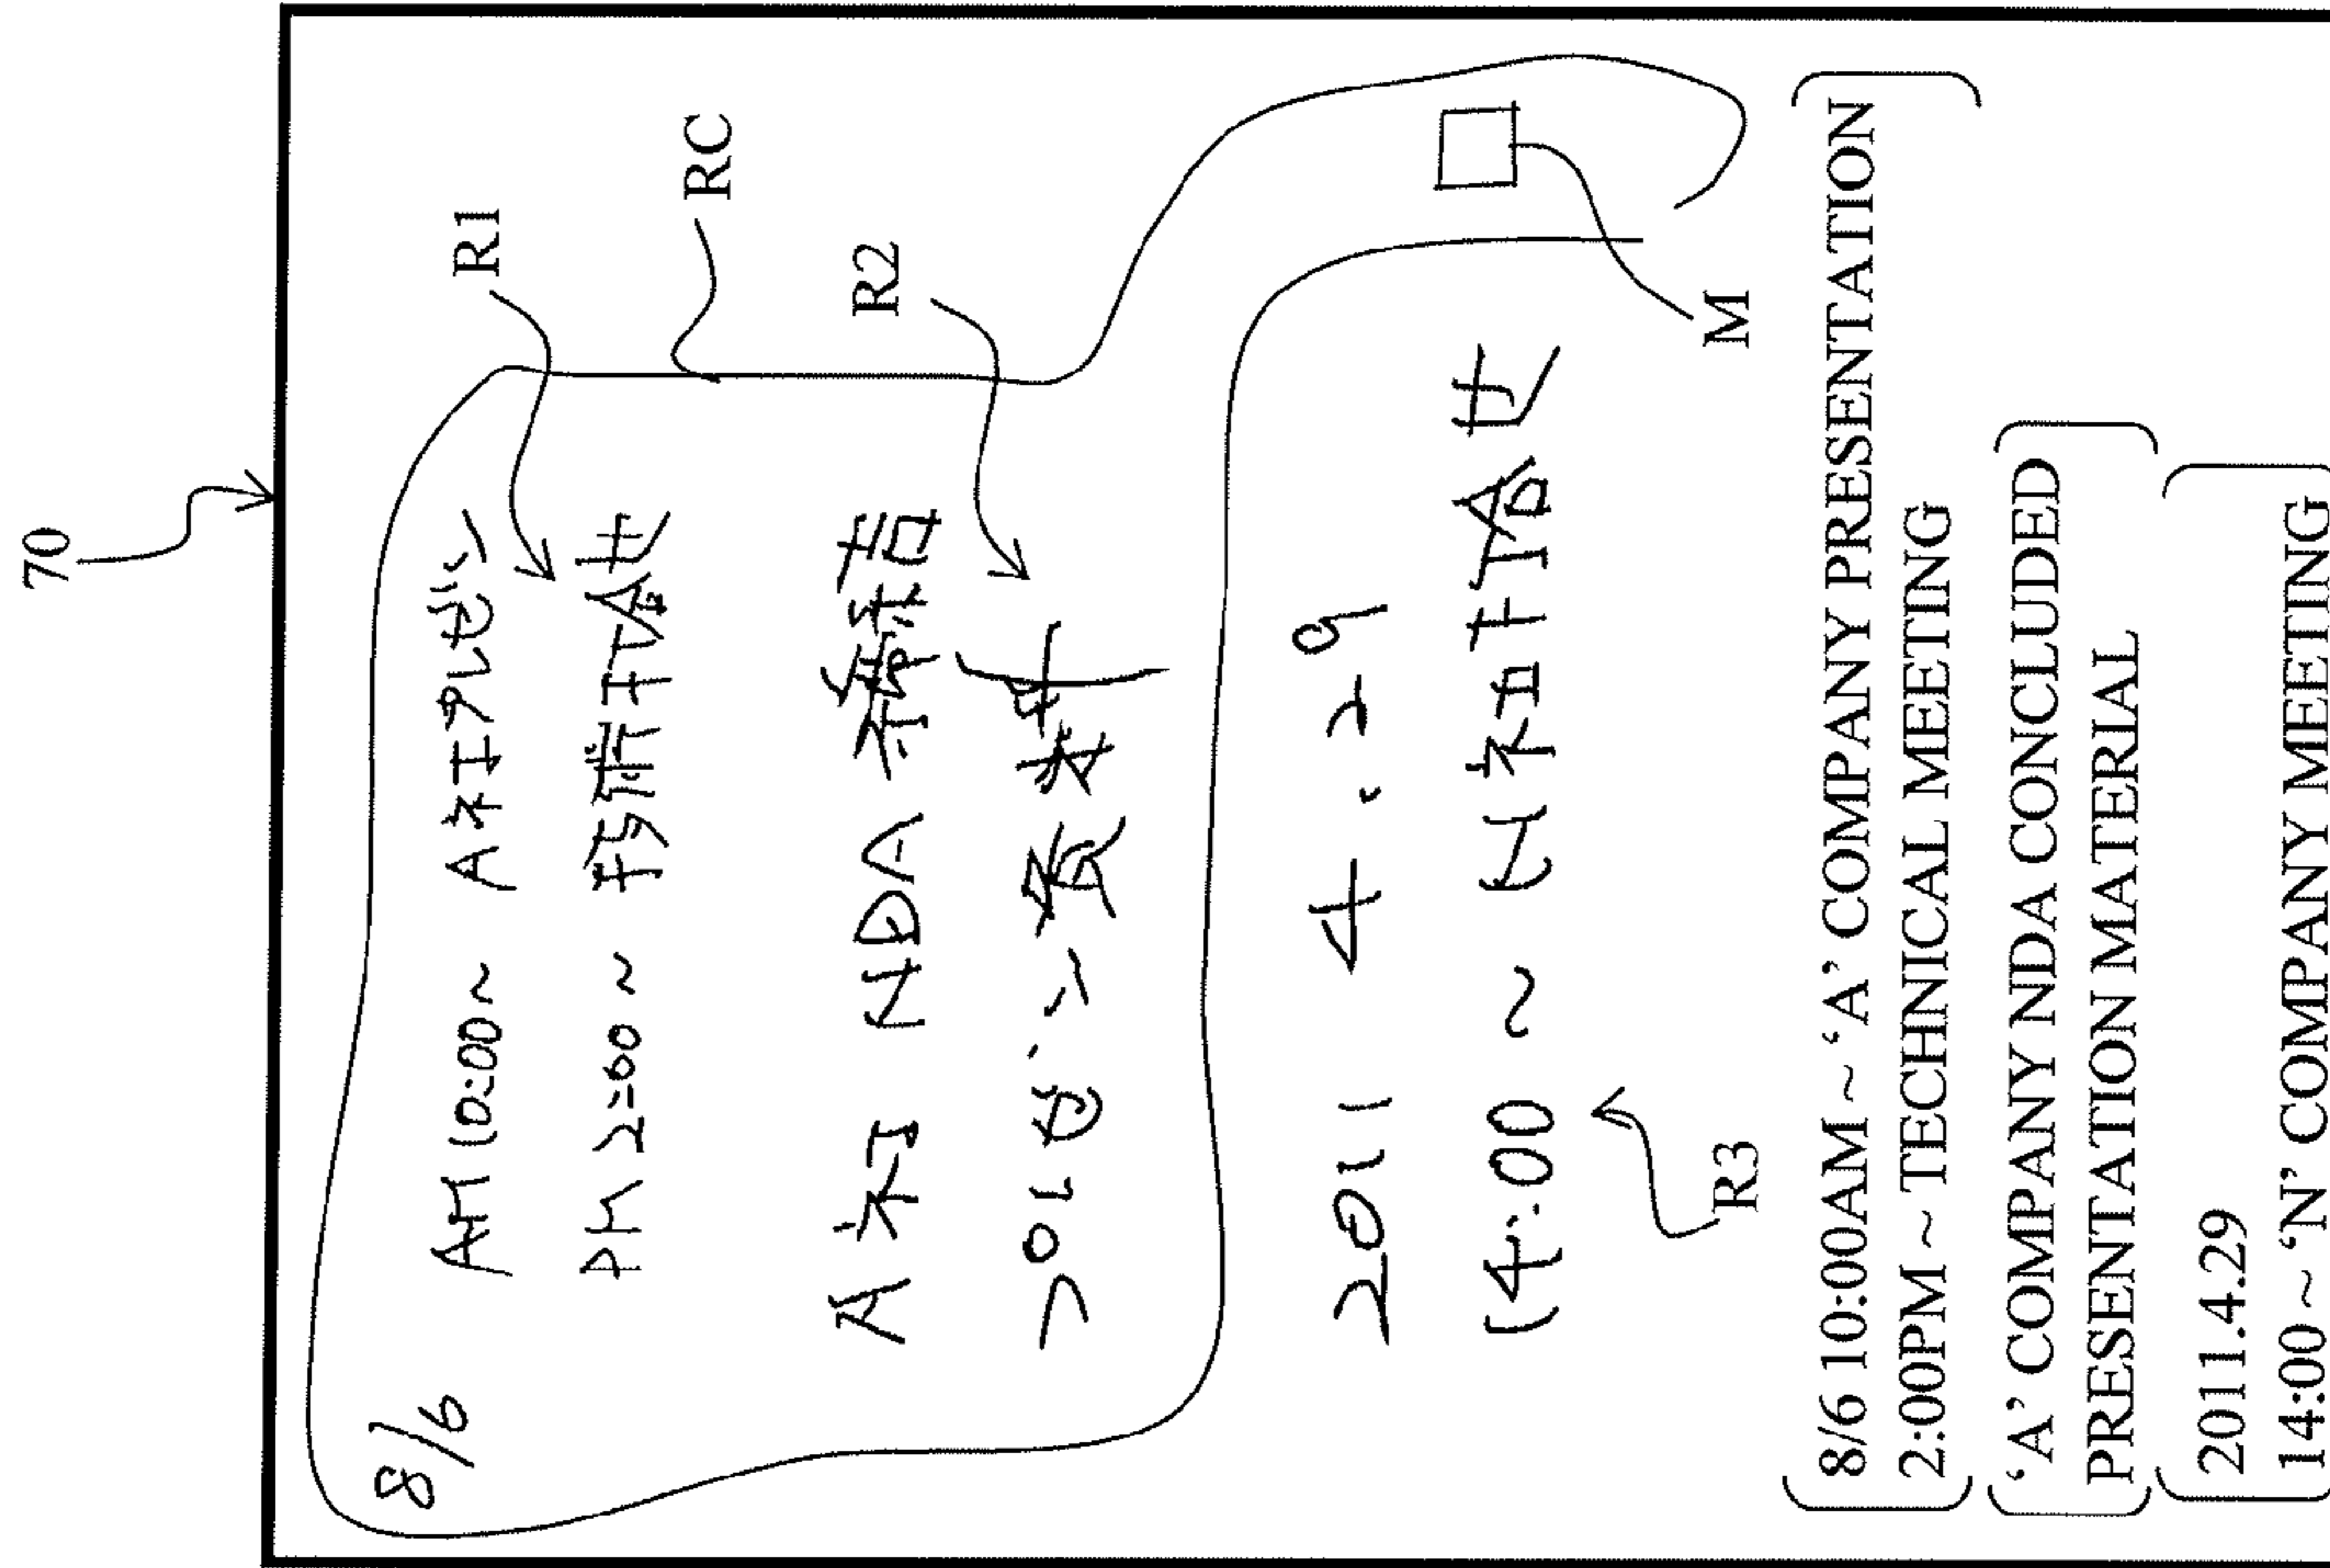 70
8/6
AM 10:00~ A社プレゼン
R1
PM 2:00~ 技術打合せ
RC
A社 NDA 締結
R2
プレゼン資料
2011 4.29
14:00 ~ N社打合せ
M
R3
8/6 10:00AM ~ ‘A’ COMPANY PRESENTATION
2:00PM ~ TECHNICAL MEETING
‘A’ COMPANY NDA CONCLUDED
PRESENTATION MATERIAL
2011.4.29
14:00 ~ ‘N’ COMPANY MEETING